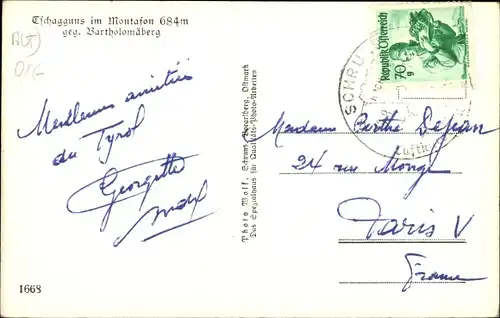 Tschagguns im Montafon 684m
geg. Bartholomäberg
Meilleures amitiés
du Tyrol
Georgette
Photo Wolf, Schruns, Vorarlberg, Ostmark
Das Spezialhaus für Qualitäts-Photo-Arbeiten
Republik Österreich
70
g
SCHRU
Luftk
Madame Berthe Dejean
24 rue Monge
Paris V
France
1668